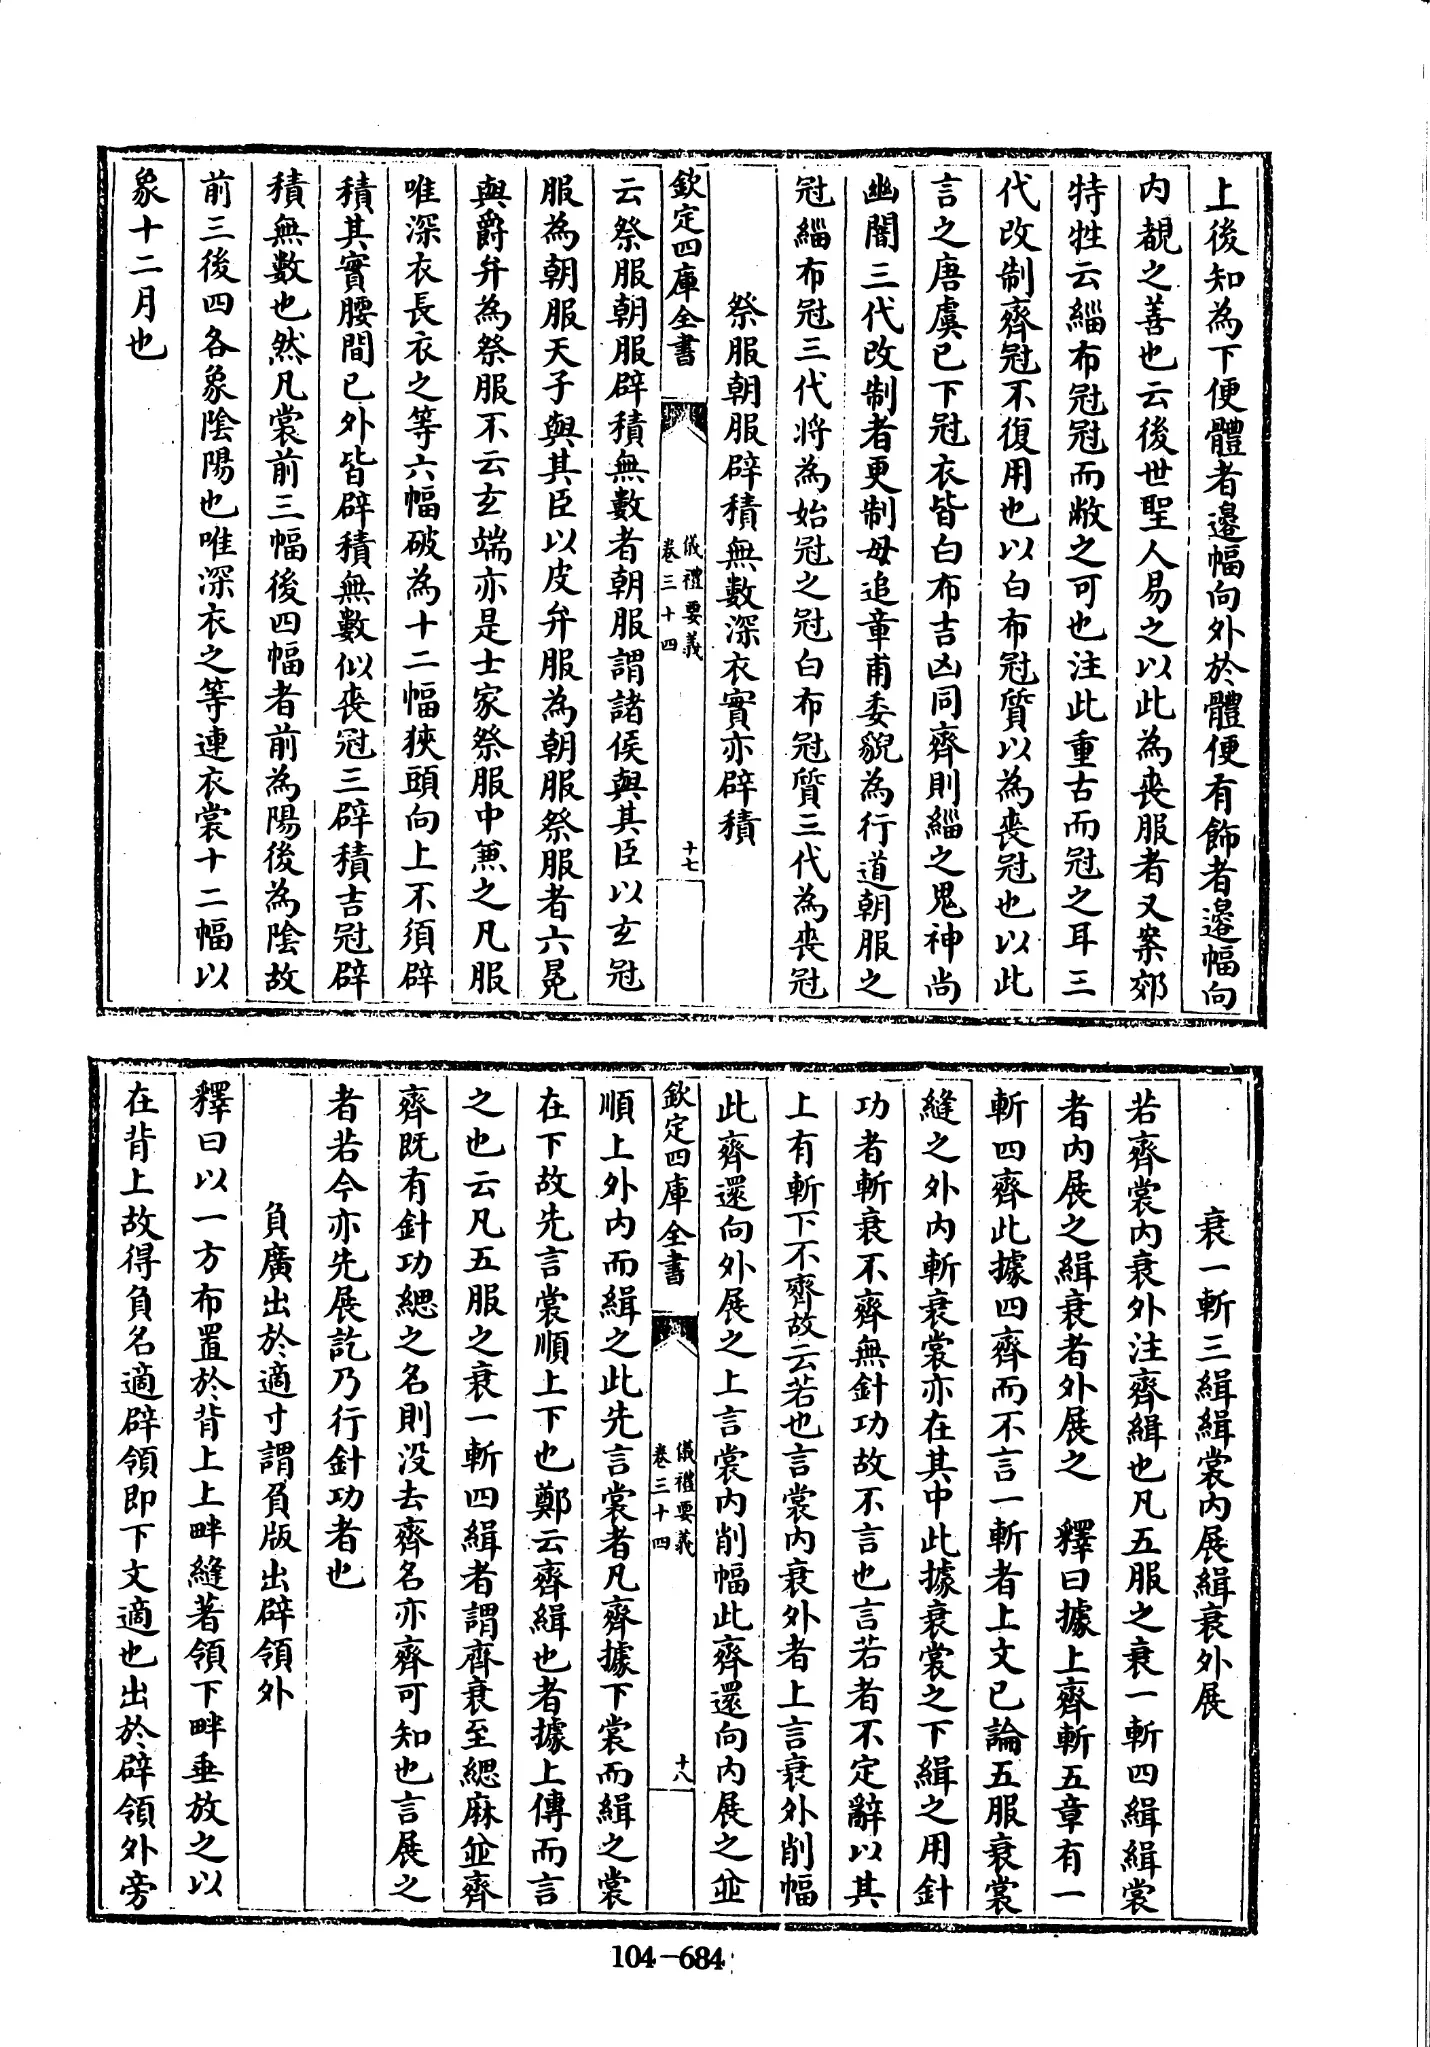 上後知為下便體者邉幅向外於體便有飾者邉幅向
内覩之善也云後世聖人易之以此為喪服者又案郊
特牲云緇布冠冠而敝之可也注此重古而冠之耳三
代改制齊冠不復用也以白布冠質以為喪冠也以此
言之唐虞已下冠衣皆白布吉凶同齊則緇之鬼神尚
幽闇三代改制者更制母追章甫委貌為行道朝服之
冠緇布冠三代將為始冠之冠白布冠質三代為喪冠
祭服朝服辟積無數深衣實亦辟積
欽定四庫全書
儀禮要義
卷三十四
十七
云祭服朝服辟積無數者朝服謂諸侯與其臣以玄冠
服為朝服天子與其臣以皮弁服為朝服祭服者六冕
與爵弁為祭服不云玄端亦是士家祭服中兼之凡服
唯深衣長衣之等六幅破為十二幅狹頭向上不須辟
積其實腰間已外皆辟積無數似喪冠三辟積吉冠辟
積無數也然凡裳前三幅後四幅者前為陽後為陰故
前三後四各象陰陽也唯深衣之等連衣裳十二幅以
象十二月也
衰一斬三緝緝裳内展緝衰外展
若齊裳内衰外注齊緝也凡五服之衰一斬四緝緝裳
者内展之緝衰者外展之 釋曰據上齊斬五章有一
斬四齊此據四齊而不言一斬者上文已論五服衰裳
縫之外内斬衰裳亦在其中此據衰裳之下緝之用針
功者斬衰不齊無針功故不言也言若者不定辭以其
上有斬下不齊故云若也言裳内衰外者上言衰外削幅
此齊還向外展之上言裳内削幅此齊還向内展之並
欽定四庫全書
儀禮要義
卷三十四
十八
順上外内而緝之此先言裳者凡齊據下裳而緝之裳
在下故先言裳順上下也鄭云齊緝也者據上傳而言
之也云凡五服之衰一斬四緝者謂齊衰至緦麻並齊
齊既有針功緦之名則没去齊名亦齊可知也言展之
者若今亦先展訖乃行針功者也
負廣出於適寸謂負版出辟領外
釋曰以一方布置於背上上畔縫著領下畔垂放之以
在背上故得負名適辟領即下文適也出於辟領外旁
104-684